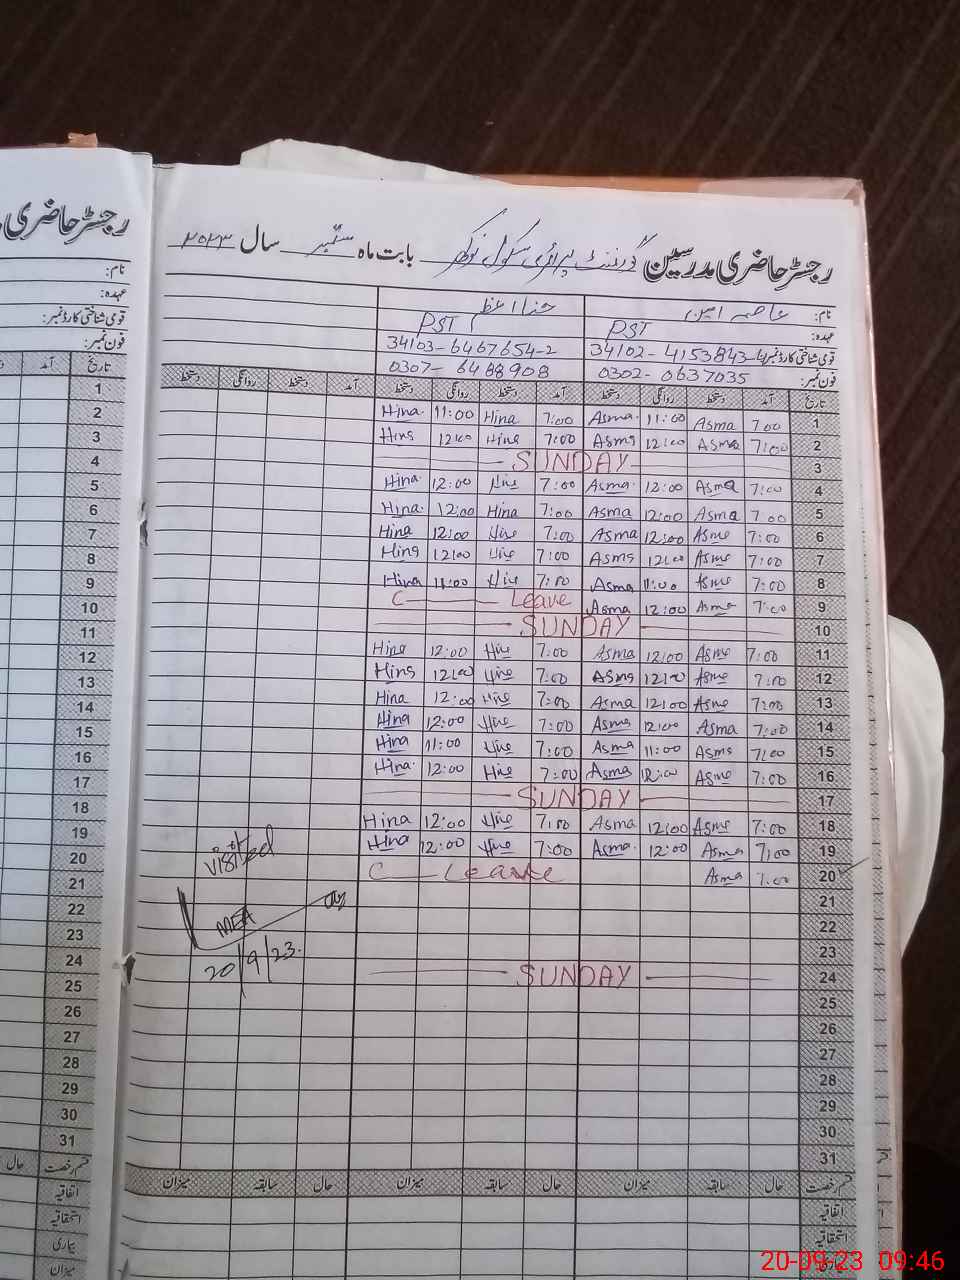 رجسٹر حاضری مدرسین گورنمنٹ پرائمری سکول نوکھر بابت ماہ ستمبر سال ۲۰۲۳
نام: عاصمہ امین حنا اعظم
عہدہ: PST PST
قومی شناختی کارڈ نمبر: 34102-4153843- 34103-6467654-2
فون نمبر: 0302-0637035 0307-6488908
تاریخ آمد دستخط روانگی دستخط آمد دستخط روانگی دستخط آمد دستخط روانگی دستخط
1 7:00 Asma 11:00 Asma 7:00 Hina 11:00 Hina
2 7:00 Asma 12:00 Asma 7:00 Hina 12:00 Hina
3 SUNDAY
4 7:00 Asma 12:00 Asma 7:00 Hina 12:00 Hina
5 7:00 Asma 12:00 Asma 7:00 Hina 12:00 Hina
6 7:00 Asma 12:00 Asma 7:00 Hina 12:00 Hina
7 7:00 Asma 12:00 Asma 7:00 Hina 12:00 Hina
8 7:00 Asma 11:00 Asma 7:00 Hina 11:00 Hina
9 7:00 Asma 12:00 Asma C Leave
10 SUNDAY
11 7:00 Asma 12:00 Asma 7:00 Hina 12:00 Hina
12 7:00 Asma 12:00 Asma 7:00 Hina 12:00 Hina
13 7:00 Asma 12:00 Asma 7:00 Hina 12:00 Hina
14 7:00 Asma 12:00 Asma 7:00 Hina 12:00 Hina
15 7:00 Asma 11:00 Asma 7:00 Hina 11:00 Hina
16 7:00 Asma 12:00 Asma 7:00 Hina 12:00 Hina
17 SUNDAY
18 7:00 Asma 12:00 Asma 7:00 Hina 12:00 Hina
19 7:00 Asma 12:00 Asma 7:00 Hina 12:00 Hina
20 7:00 Asma C Leave
21
22
23
24 SUNDAY
25
26
27
28
29
30
31
قسم رخصت حال سابقہ میزان حال سابقہ میزان حال سابقہ میزان
اتفاقیہ
استحقاقیہ
visited
MEA
20/9/23.
رجسٹر حاضری
نام:
عہدہ:
قومی شناختی کارڈ نمبر:
فون نمبر:
تاریخ آمد
1
2
3
4
5
6
7
8
9
10
11
12
13
14
15
16
17
18
19
20
21
22
23
24
25
26
27
28
29
30
31
قسم رخصت حال
اتفاقیہ
استحقاقیہ
بیماری
میزان
20-09-23 09:46